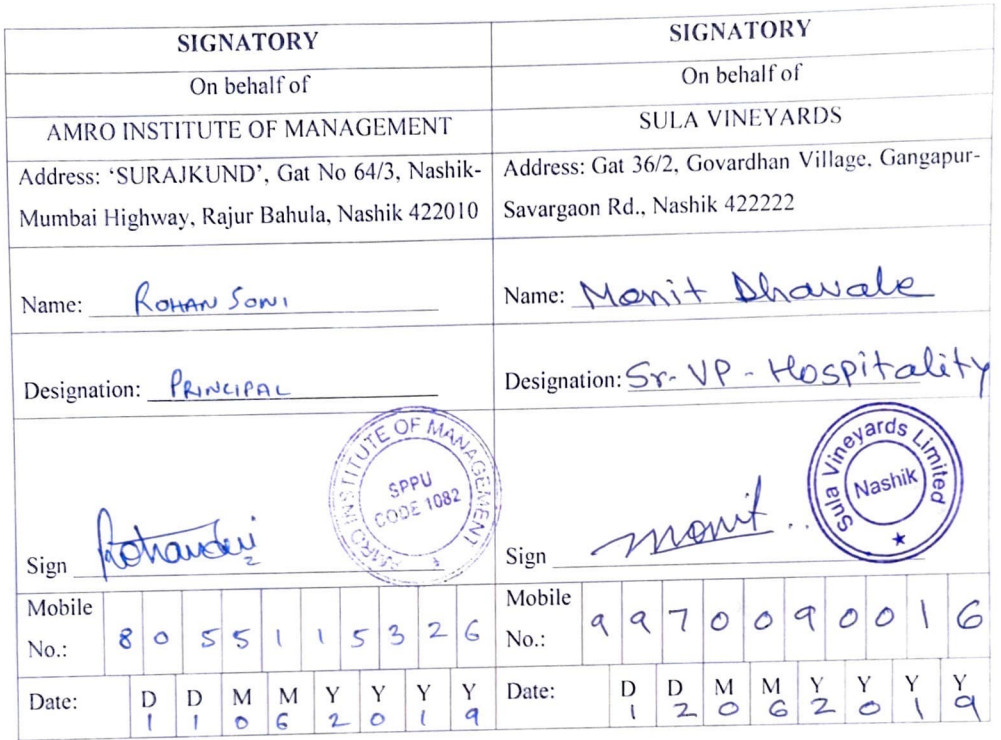 SIGNATORY
On behalf of
AMRO INSTITUTE OF MANAGEMENT
Address: ‘SURAJKUND’, Gat No 64/3, Nashik-
Mumbai Highway, Rajur Bahula, Nashik 422010
Name: ROHAN SONI
Designation: PRINCIPAL
AMRO INSTITUTE OF MANAGEMENT
SPPU
CODE 1082
Sign
Mobile
No.: 8 0 5 5 1 1 5 3 2 6
Date: D D M M Y Y Y Y
1 1 0 6 2 0 1 9
SIGNATORY
On behalf of
SULA VINEYARDS
Address: Gat 36/2, Govardhan Village, Gangapur-
Savargaon Rd., Nashik 422222
Name: Monit Dhavale
Designation: Sr. VP - Hospitality
Sula Vineyards Limited
Nashik
Sign monit
Mobile
No.: 9 9 7 0 0 9 0 0 1 6
Date: D D M M Y Y Y Y
1 2 0 6 2 0 1 9